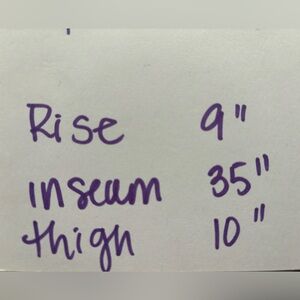 Rise 9"
inseam 35"
thigh 10"